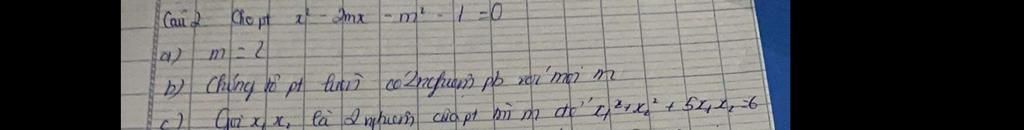 Câu 2 Cho pt x² - 2mx - m² - 1 = 0
a) m = 2
b) Chứng tỏ pt luôn có 2 nghiệm pb với mọi m
c) Gọi x₁ x₂ là 2 nghiệm của pt tìm m để x₁² + x₂² + 5x₁x₂ = 6